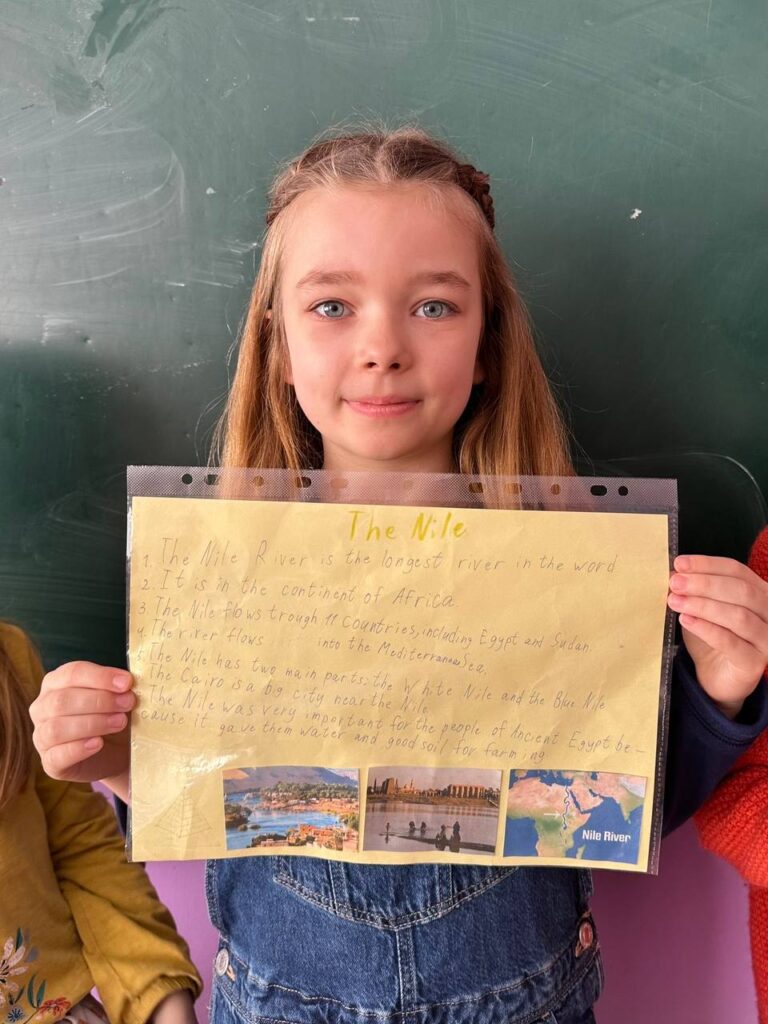 The Nile
1. The Nile River is the longest river in the word
2. It is in the continent of Africa.
3. The Nile flows trough 11 countries, including Egypt and Sudan.
4. The river flows into the Mediterranean Sea.
5. The Nile has two main parts: the White Nile and the Blue Nile
The Cairo is a big city near the Nile.
The Nile was very important for the people of Ancient Egypt be-
cause it gave them water and good soil for farming.
Nile River